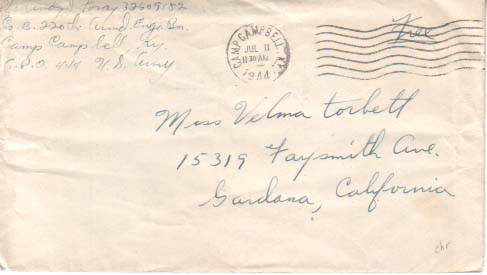 32609182
Co. B. 220th Armd. Engr. Bn.
Camp Campbell, Ky.
A.P.O. 444 U.S. Army
CAMP CAMPBELL, KY.
JUL 11
11 30 AM
1944
Free
Miss Velma Torbett
15319 Faysmith Ave.
Gardana, California
chr